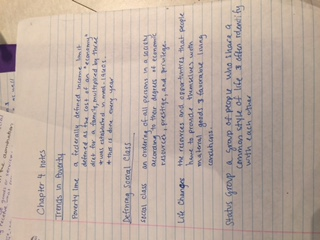 Chapter 4 Notes
Trends in Poverty
Poverty line a federally defined income limit
defined as the cost of an "economy"
diet for a family, multiplied by three
* was established in mid. 1960s.
* this is done every year
Defining Social Class
social class an ordering of all persons in a society
according to their degrees of economic
resources, prestige, and privilege.
Life Chances the resources and opportunities that people
have to provide themselves with
material goods & favorable living
conditions.
Status Group a group of people who share a
common style of life & often identify
with each other